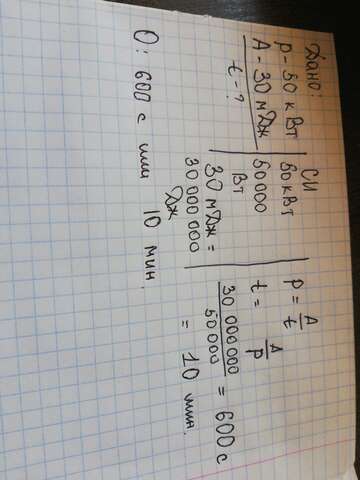 Дано:
р - 50 кВт
А - 30 мДж
t - ?
СИ
50 кВт
50000
Вт
30 мДж =
30 000 000
Дж
р = А/t
t = А/р
30 000 000/50000 = 600 с
= 10 мин.
О: 600 с или 10 мин.